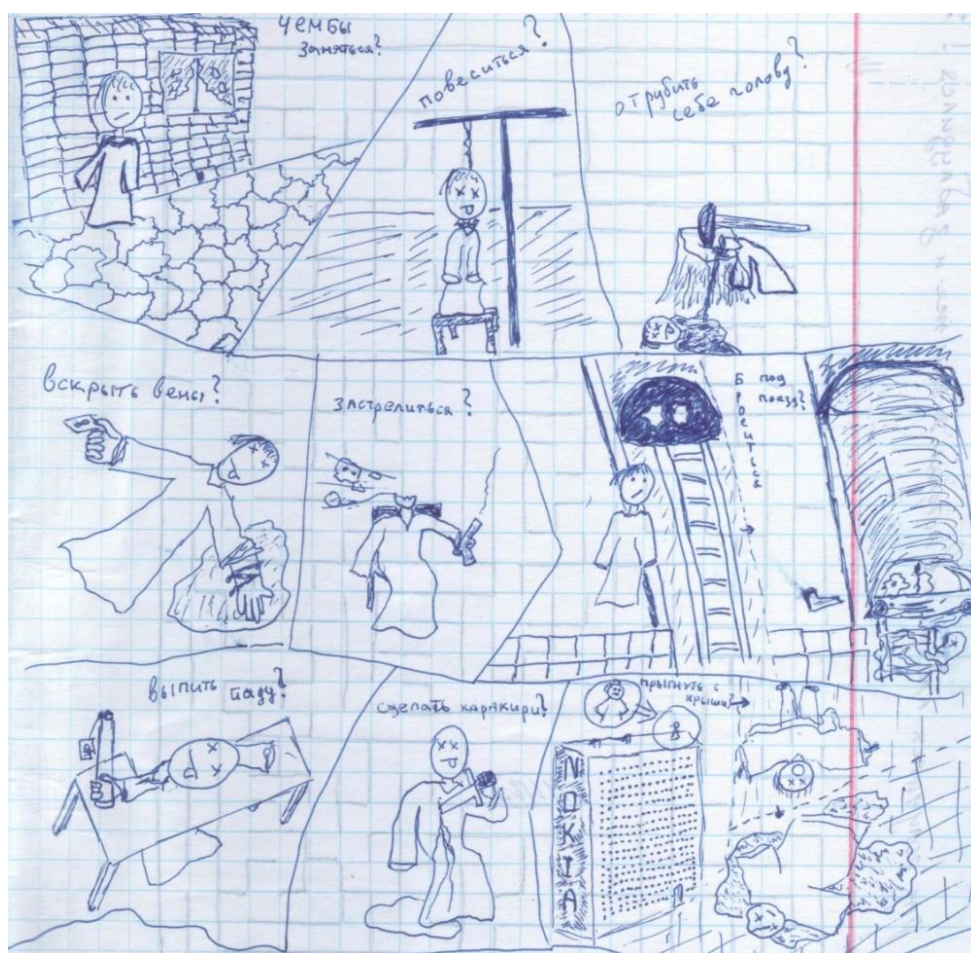 Чем бы
заняться?
повеситься?
отрубить
себе голову?
вскрыть вены?
застрелиться?
Броситься
под
поезд?
выпить яду?
сделать харакири?
прыгнуть с
крыши?
NOKIA